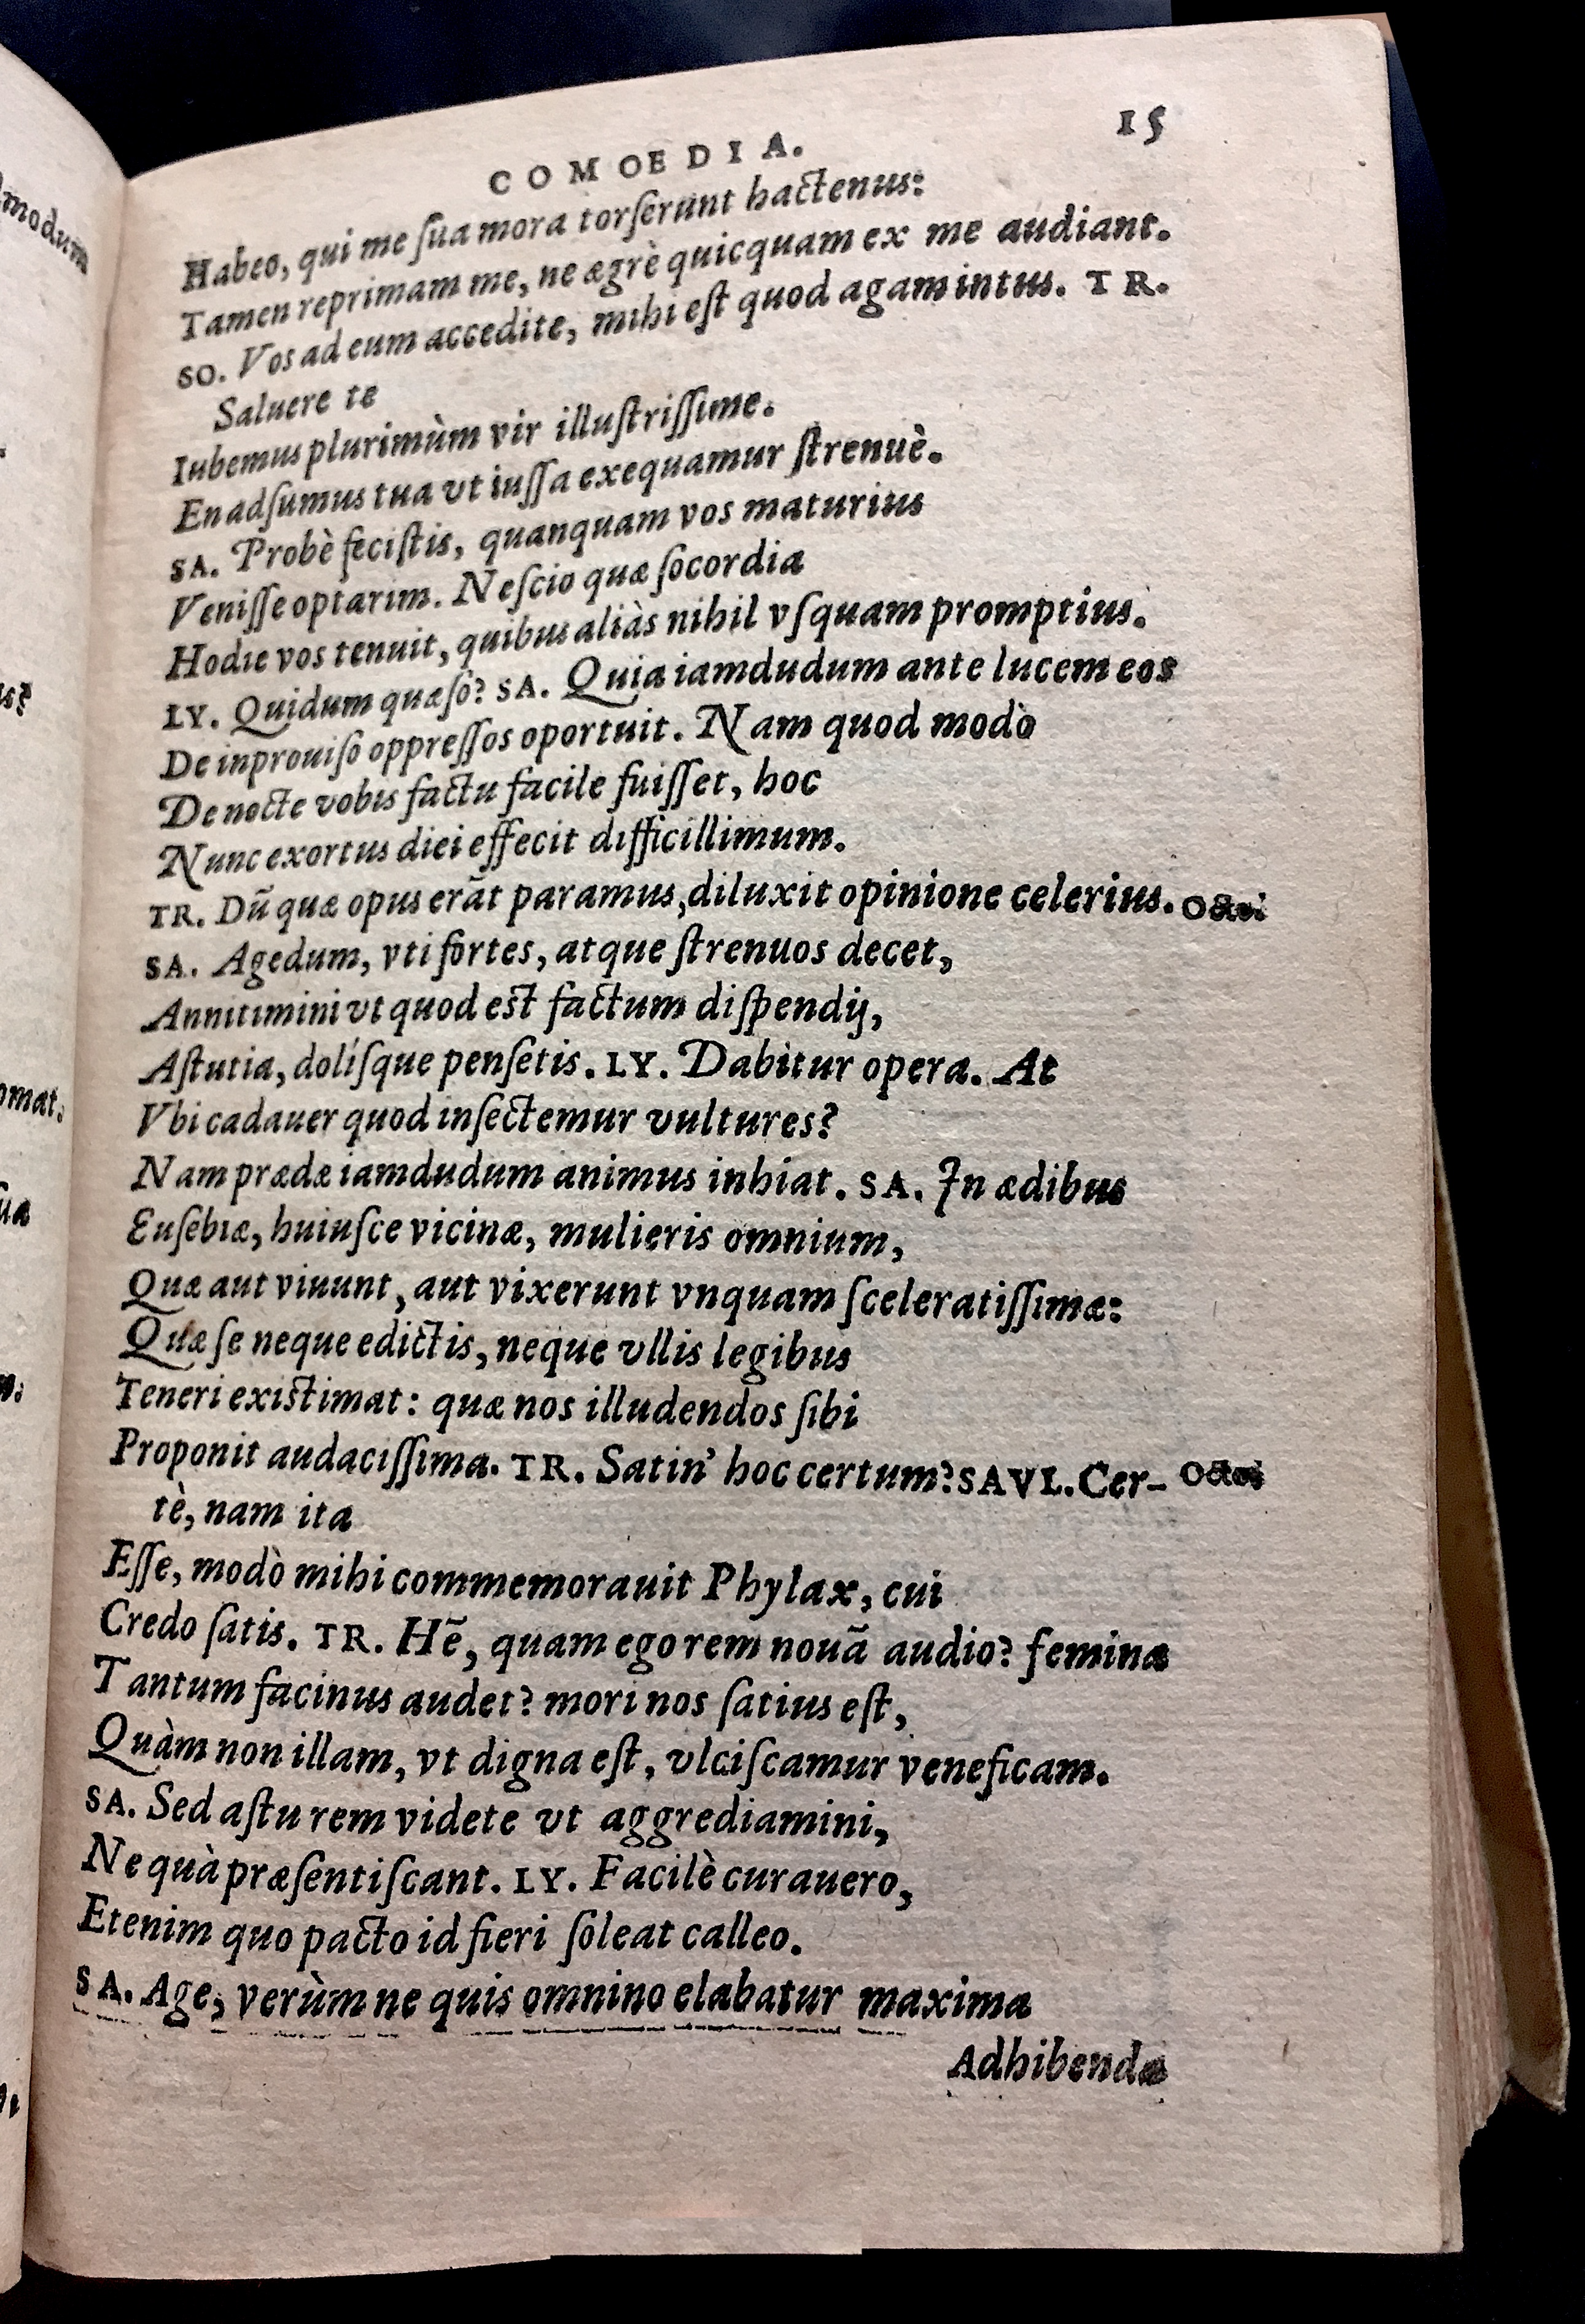 COMOEDIA. 15
Habeo, qui me ſua mora torſerunt hactenus:
Tamen reprimam me, ne ægrè quicquam ex me audiant.
SO. Vos ad eum accedite, mihi eſt quod agam intus. TR.
Saluere te
Iubemus plurimùm vir illuſtriſſime.
En adſumus tua vt iuſſa exequamur ſtrenuè.
SA. Probè feciſtis, quanquam vos maturius
Veniſſe optarim. Neſcio quæ ſocordia
Hodie vos tenuit, quibus aliàs nihil vſquam promptius.
LY. Quidum quæſo? SA. Quia iamdudum ante lucem eos
De inprouiſo oppreſſos oportuit. Nam quod modò
De nocte vobis factu facile fuiſſet, hoc
Nunc exortus diei effecit difficillimum.
TR. Dũ quæ opus erãt paramus, diluxit opinione celerius. Octoi
SA. Agedum, vti fortes, atque ſtrenuos decet,
Annitimini vt quod est factum diſpendij,
Aſtutia, dolíſque penſetis. LY. Dabitur opera. At
Vbi cadauer quod inſectemur vultures?
Nam prædæ iamdudum animus inhiat. SA. In ædibus
Euſebiæ, huiuſce vicinæ, mulieris omnium,
Quæ aut viuunt, aut vixerunt vnquam ſceleratiſſimæ:
Quæ ſe neque edictis, neque vllis legibus
Teneri existimat: quæ nos illudendos ſibi
Proponit audaciſſima. TR. Satin' hoc certum? SAVL. Cer- Octoi
tè, nam ita
Eſſe, modò mihi commemorauit Phylax, cui
Credo ſatis. TR. Hẽ, quam ego rem nouã audio? femina
Tantum facinus audet? mori nos ſatius eſt,
Quàm non illam, vt digna eſt, vlciſcamur veneficam.
SA. Sed aſtu rem videte vt aggrediamini,
Ne quà præſentiſcant. LY. Facilè curauero,
Etenim quo pacto id fieri ſoleat calleo.
SA. Age, verùm ne quis omnino elabatur maxima
Adhibenda